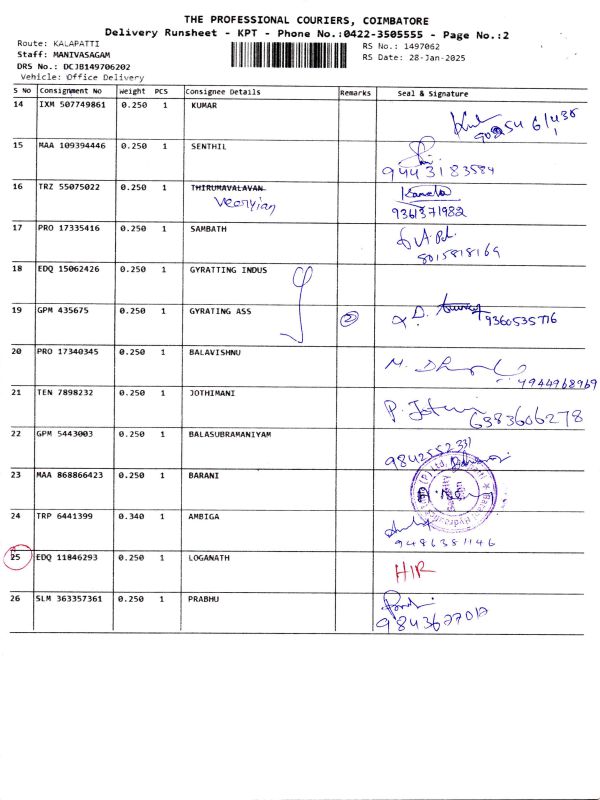 THE PROFESSIONAL COURIERS, COIMBATORE
Delivery Runsheet - KPT - Phone No.:0422-3505555 - Page No.:2
Route: KALAPATTI RS No.: 1497062
Staff: MANIVASAGAM RS Date: 28-Jan-2025
DRS No.: DCJB149706202
Vehicle: Office Delivery
S No Consignment No Weight PCS Consignee Details Remarks Seal & Signature
14 IXM 507749861 0.250 1 KUMAR
15 MAA 109394446 0.250 1 SENTHIL
9443183584
16 TRZ 55075022 0.250 1 THIRUMAVALAVAN
9361371982
17 PRO 17335416 0.250 1 SAMBATH
8015818169
18 EDQ 15062426 0.250 1 GYRATTING INDUS
19 GPM 435675 0.250 1 GYRATING ASS 2 9360535776
20 PRO 17340345 0.250 1 BALAVISHNU
21 TEN 7898232 0.250 1 JOTHIMANI
6383606278
22 GPM 5443003 0.250 1 BALASUBRAMANIYAM
9842552331
23 MAA 868866423 0.250 1 BARANI
24 TRP 6441399 0.340 1 AMBIGA
9486381146
25 EDQ 11846293 0.250 1 LOGANATH HIR
26 SLM 363357361 0.250 1 PRABHU
9843627012